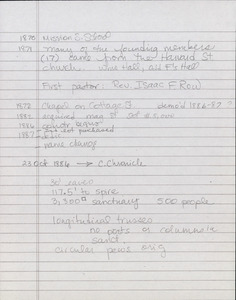 1870 Mission S. School
1871 many of the founding members
(17) came from the Harvard St
church.
First pastor: Rev. Isaac F. Row
1872 Chapel on Cottage St demo'd 1886-87?
1883 acquired
1886
- but not purchased
1887
- name change
23 Oct 1884 → C. Chronicle
117.5' to spire
3,300 sanctuary 500 people
longitudinal trusses
no posts or columns in
sanct
circular pews orig